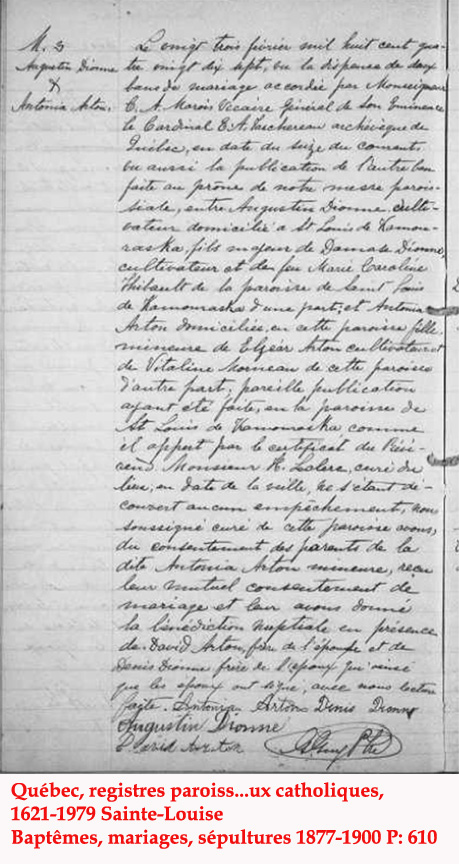 M. 3
Augustin Dionne
&
Antonia Arton.
Le vingt trois février mil huit cent qua-
tre vingt dix sept, vu la dispense de deux
bans de mariage accordée par Monseigneur
C. A. Marois Vicaire Général de son Eminence
le Cardinal E. A. Taschereau archévêque de
Québec, en date du seize du courant
vu aussi la publication de l'autre ban
faite au prône de notre messe parois-
siale, entre Augustin Dionne culti-
vateur domicilié à St Louis de Kamou-
raska, fils majeur de Damase Dionne,
cultivateur et de feu Marie Caroline
Thibault de la paroisse de Saint Louis
de Kamouraska d'une part; et Antonia
Arton domiciliée en cette paroisse fille
mineure de Elzéar Arton cultivateur et
de Vitaline Morneau de cette paroisse
d'autre part, pareille publication
ayant été faite, en la paroisse de
St Louis de Kamouraska comme
il appert par le certificat du Révé-
rend Monsieur Leclerc, curé du
lieu, en date de la veille, ne s'étant dé-
couvert aucun empêchement, nous
soussigné curé de cette paroisse avons,
du consentement des parents de la
dite Antonia Arton mineure, reçu
leur mutuel consentement de
mariage et leur avons donné
la bénédiction nuptiale en présence
de David Arton, frère de l'épouse et de
Denis Dionne frère de l'époux qui ainsi
que les époux ont signé, avec nous lecture
faite. Antonia Arton Denis Dionne
Augustin Dionne
David Arton Ptre
Québec, registres paroiss...ux catholiques,
1621-1979 Sainte-Louise
Baptêmes, mariages, sépultures 1877-1900 P: 610